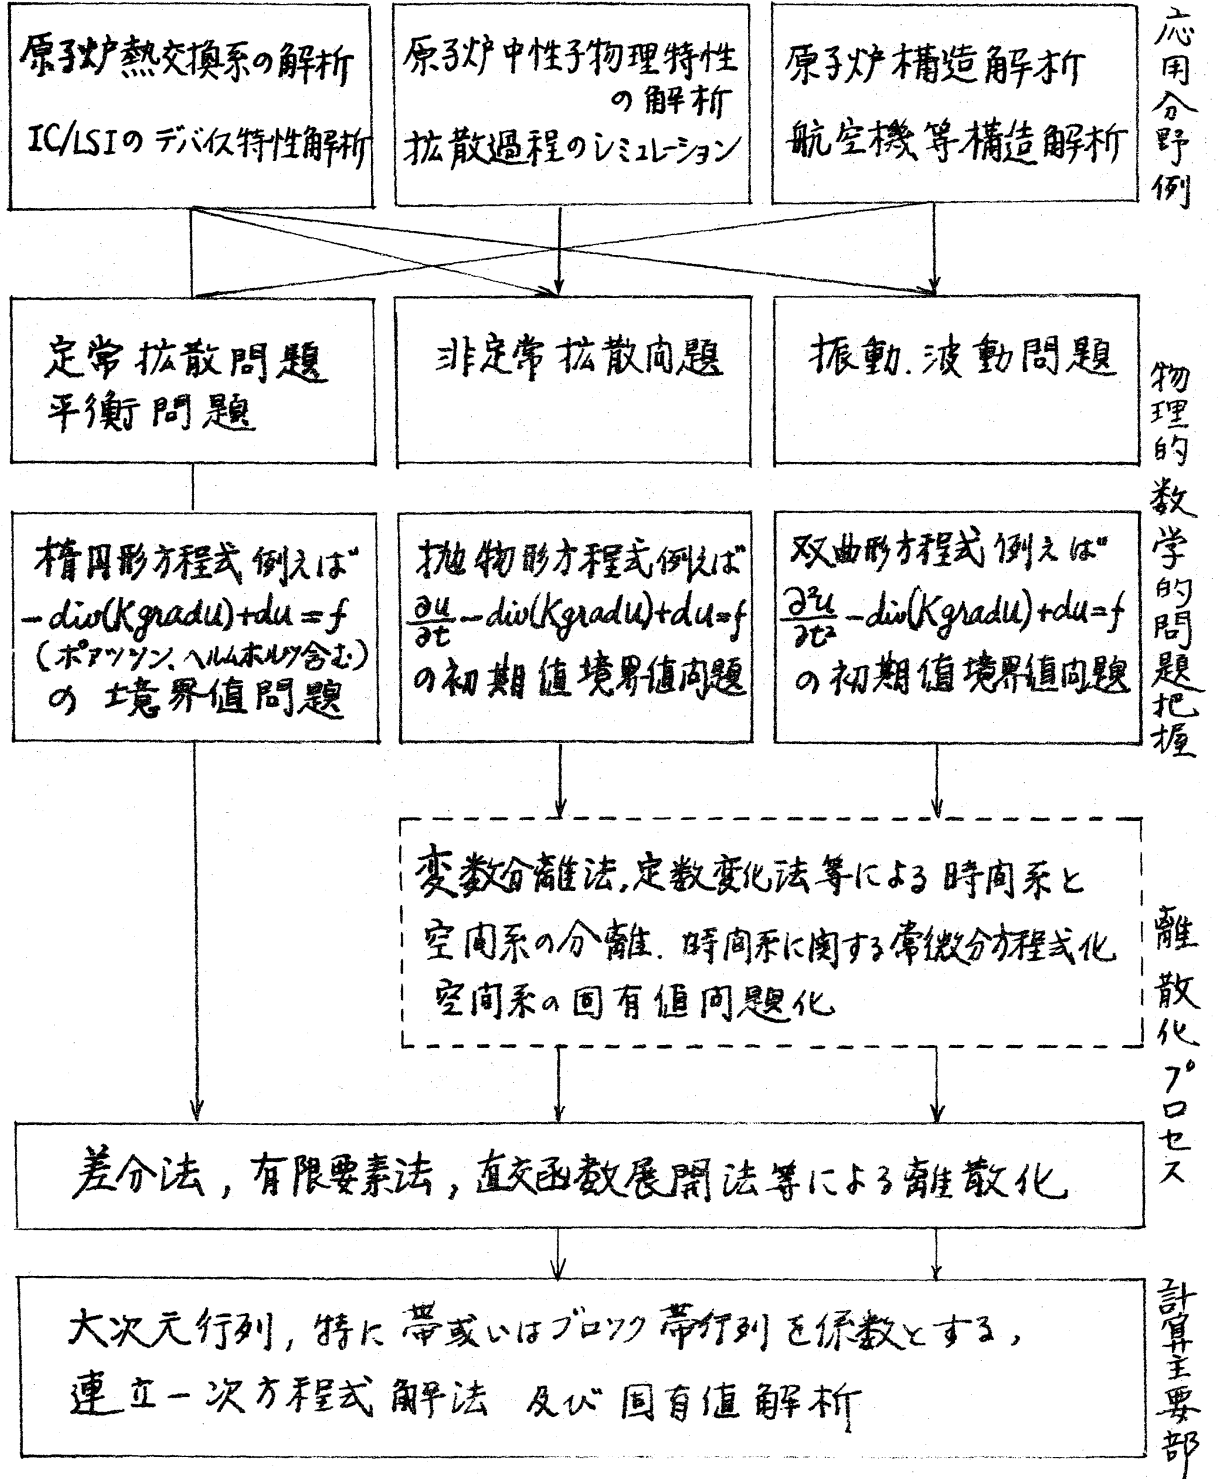 原子炉熱交換系の解析
IC/LSIのデバイス特性解析
原子炉中性子物理特性
の解析
拡散過程のシミュレーション
原子炉構造解析
航空機等構造解析
応用分野例
定常拡散問題
平衡問題
非定常拡散問題
振動.波動問題
物理的数学的問題把握
楕円形方程式例えば
-div(Kgradu)+du=f
(ポアッソン、ヘルムホルツ含む)
の境界値問題
抛物形方程式例えば
∂u/∂t-div(Kgradu)+du=f
の初期値境界値問題
双曲形方程式例えば
∂²u/∂t²-div(Kgradu)+du=f
の初期値境界値問題
変数分離法,定数変化法等による時間系と
空間系の分離.時間系に関する常微分方程式化
空間系の固有値問題化
離散化プロセス
差分法,有限要素法,直交函数展開法等による離散化
大次元行列,特に帯或いはブロック帯行列を係数とする,
連立一次方程式解法 及び固有値解析
計算主要部